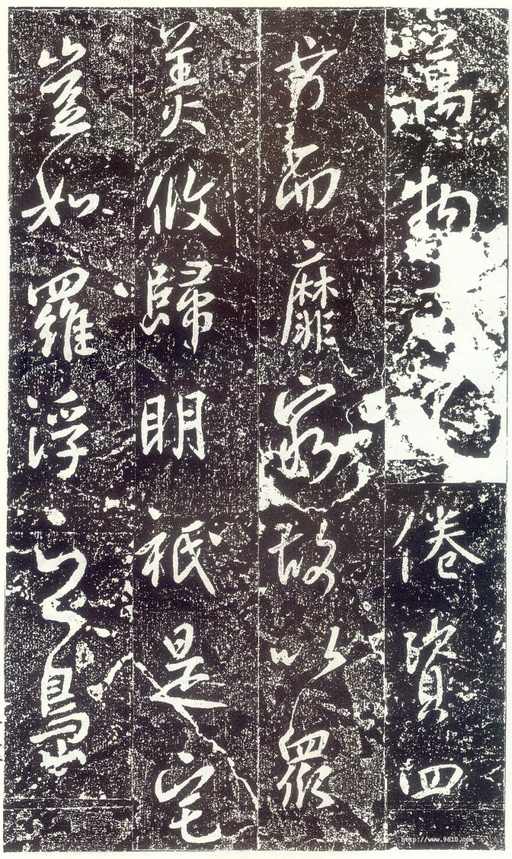 萬物倦資四
方而靡窮故以衆
美攸歸明祇是宅
豈如羅浮之島
http://www.9610.com